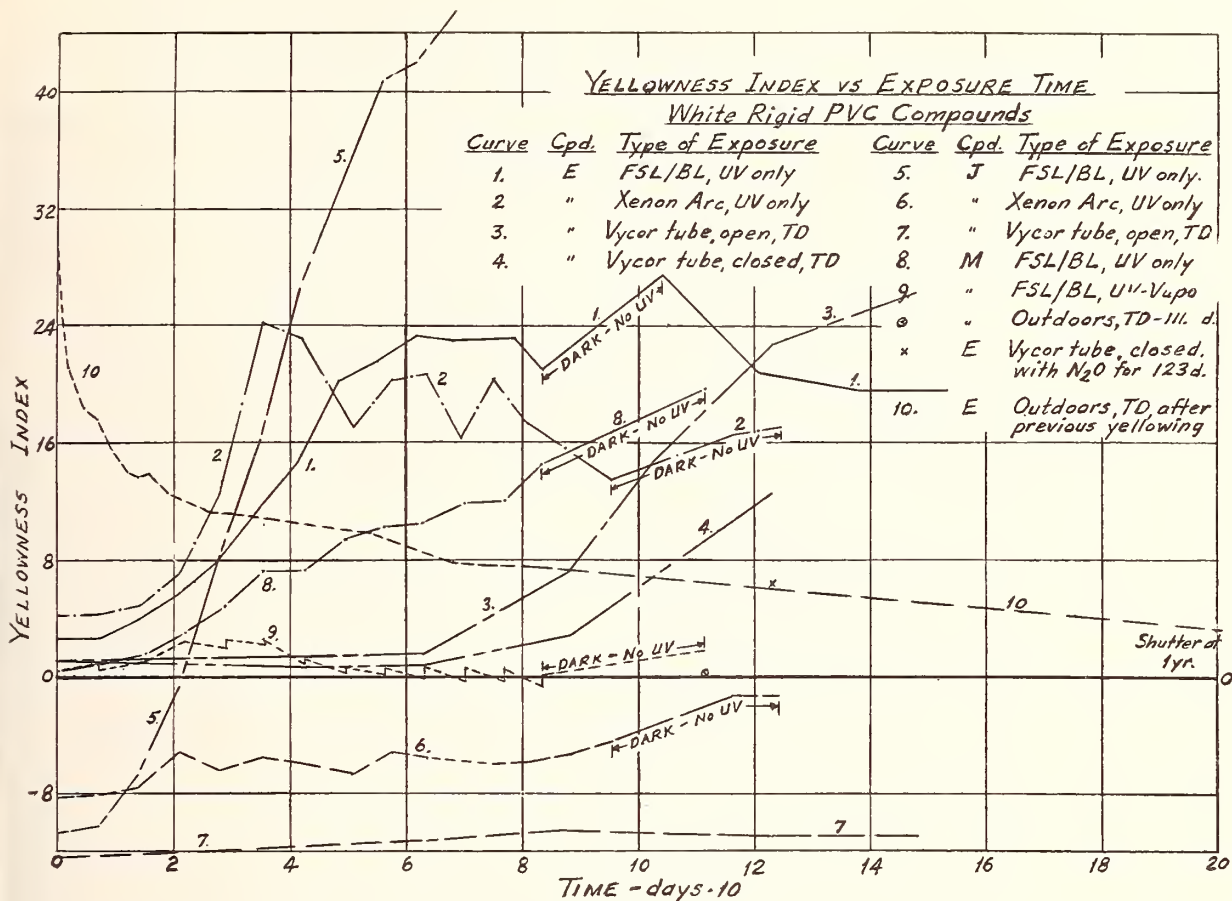 YELLOWNESS INDEX VS EXPOSURE TIME
White Rigid PVC Compounds
Curve Cpd. Type of Exposure
1. E FSL/BL, UV only
2 " Xenon Arc, UV only
3. " Vycor tube, open, TD
4. " Vycor tube, closed, TD
Curve Cpd. Type of Exposure
5. J FSL/BL, UV only.
6. " Xenon Arc, UV only
7. " Vycor tube, open, TD
8. M FSL/BL, UV only
9 " FSL/BL,
⊙ " Outdoors, TD-111. d.
x E Vycor tube, closed.
with N2O for 123d.
10. E Outdoors, TD, after
previous yellowing
YELLOWNESS INDEX
40
32
24
16
8
0
-8
5.
10
2
1.
8.
9
5.
6.
7.
2
1
DARK-NO UV
3.
1.
8.
DARK-NO UV
2
DARK-NO UV
4.
3.
x
10
DARK-NO UV
⊙
Shutter at
1yr.
0
DARK-NO UV
7
0 2 4 6 8 10 12 14 16 18 20
TIME - days·10